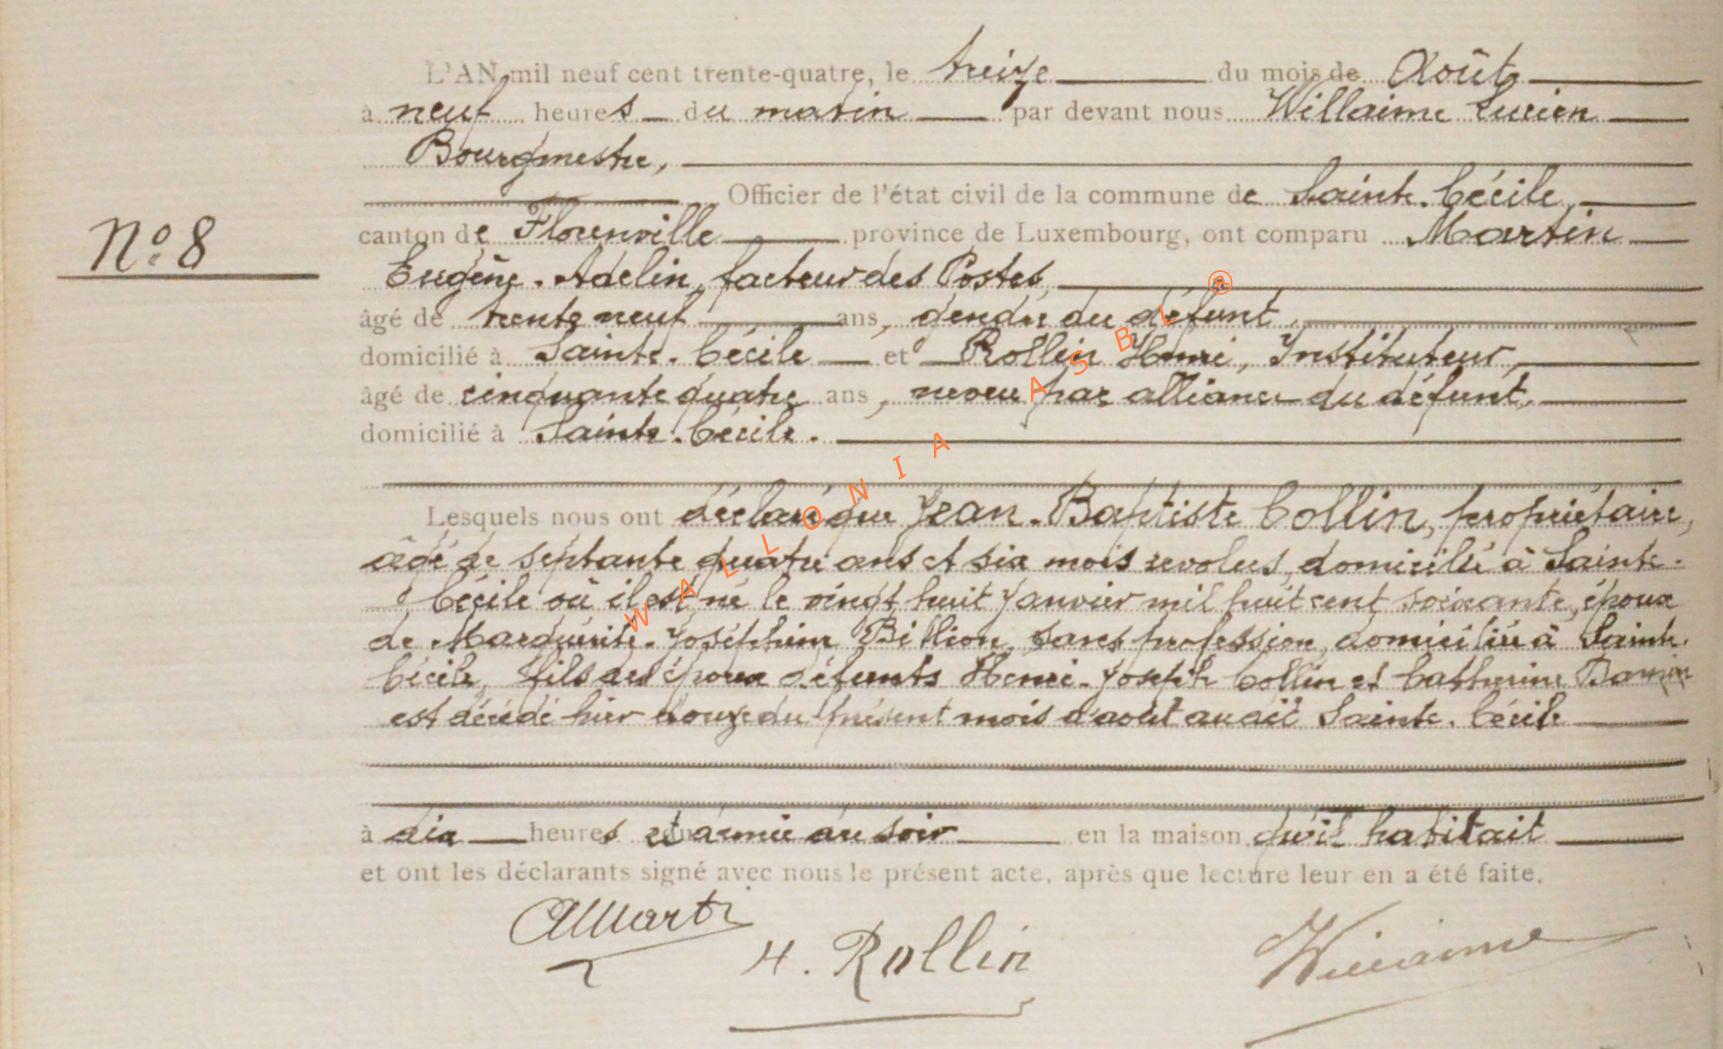 L'AN mil neuf cent trente-quatre, le treize du mois de Août
à neuf heures du matin par devant nous Willaime Lucien
Bourgmestre,
Officier de l'état civil de la commune de Sainte-Cécile,
N° 8
canton de Florenville province de Luxembourg, ont comparu Martin
Eugène-Adelin, facteur des Postes,
âgé de trente neuf ans, gendre du défunt,
domicilié à Sainte-Cécile et Rollin Henri, Instituteur,
âgé de cinquante quatre ans, neveu par alliance du défunt,
domicilié à Sainte-Cécile.
Lesquels nous ont déclaré que Jean-Baptiste Collin, propriétaire,
âgé de septante quatre ans et six mois revolus, domicilié à Sainte-
Cécile où il est né le vingt huit Janvier mil huit cent soixante, époux
de Marguerite-Joséphine Billion, sans profession, domiciliée à Sainte-
Cécile, fils des époux défunts Henri-Joseph Collin et Catherine
est décédé hier douze du présent mois d'août au dit Sainte-Cécile
à dix heures et demie du soir en la maison qu'il habitait
et ont les déclarants signé avec nous le présent acte, après que lecture leur en a été faite.
AMartin
H. Rollin
Willaime
WALLONIA ASBL ®